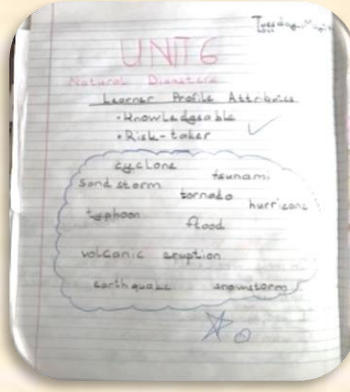 Tuesday, May
UNIT 6
Natural Disasters
Learner Profile Attributes
• Knowledgeable
• Risk-taker
cyclone
tsunami
sand storm
tornado
hurricane
typhoon
flood
volcanic eruption
earthquake
snowstorm